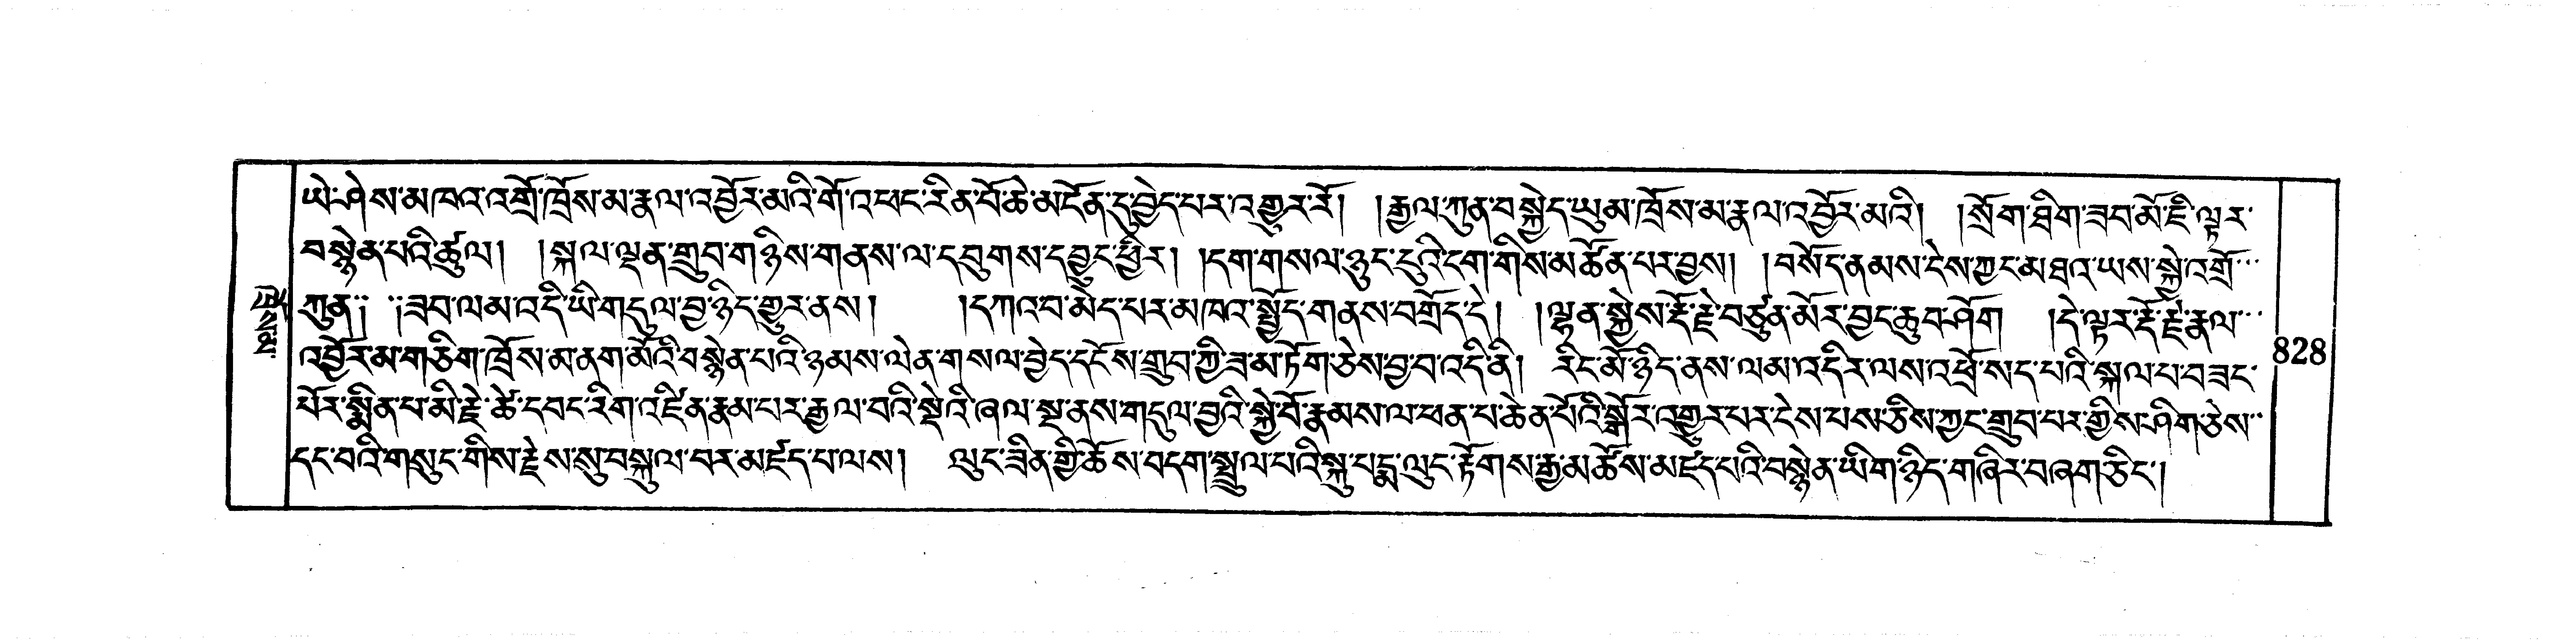 ཡེ་ཤེས་མཁའ་འགྲོ་ཁྲོས་མ་རྣལ་འབྱོར་མའི་གོ་འཕང་རིན་པོ་ཆེ་མངོན་དུ་བྱེད་པར་འགྱུར་རོ། །རྒྱལ་ཀུན་བསྐྱེད་ཡུམ་ཁྲོས་མ་རྣལ་འབྱོར་མའི། །སྲོག་ཐིག་ཟབ་མོ་ཇི་ལྟར་
བསྙེན་པའི་ཚུལ། །སྐལ་ལྡན་གྲུབ་གཉིས་གནས་ལ་དབུགས་དབྱུང་ཕྱིར། །དག་གསལ་ཉུང་ངུའི་ངག་གིས་མཚོན་པར་བྱས། །བསོད་ནམས་དེས་ཀྱང་མཐའ་ཡས་སྐྱེ་འགྲོ
ཀུན། །ཟབ་ལམ་འདི་ཡི་གདུལ་བྱ་ཉིད་གྱུར་ནས། །དཀའ་བ་མེད་པར་མཁའ་སྤྱོད་གནས་བགྲོད་དེ། །ལྷན་སྐྱེས་རྡོ་རྗེ་བཙུན་མོར་བྱང་ཆུབ་ཤོག །དེ་ལྟར་རྡོ་རྗེ་རྣལ
འབྱོར་མ་གཅིག་ཁྲོས་མ་ནག་མོའི་བསྙེན་པའི་ཉམས་ལེན་གསལ་བྱེད་དངོས་གྲུབ་ཀྱི་ཟམ་ཏོག་ཅེས་བྱ་བ་འདི་ནི། རིང་མོ་ཉིད་ནས་ལམ་འདིར་ལས་འཕྲོ་སད་པའི་སྐལ་པ་བཟང་
པོར་སྨིན་པ་མི་རྗེ་ཚེ་དབང་རིག་འཛིན་རྣམ་པར་རྒྱལ་བའི་སྡེའི་ཞལ་སྔ་ནས་གདུལ་བྱའི་སྐྱེ་བོ་རྣམས་ལ་ཕན་པ་ཆེན་པོའི་སྒོར་འགྱུར་པར་ངེས་པས་ཅིས་ཀྱང་གྲུབ་པར་གྱིས་ཤིག་ཅེས
དང་བའི་གསུང་གིས་རྗེས་སུ་བསྐུལ་བར་མཛད་པ་ལས། ལུང་ཟིན་གྱི་ཆོས་བདག་སྤྲུལ་པའི་སྐུ་པདྨ་ལུང་རྟོགས་རྒྱ་མཚོས་མཛད་པའི་བསྙེན་ཡིག་ཉིད་གཞིར་བཞག་ཅིང་།
828